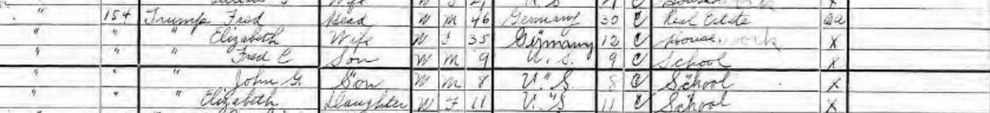 " 154 Trump Fred Head W M 46 Germany 30 C Real Estate
" " Elizabeth Wife W F 35 Germany 12 C House work X
" " Fred C Son W M 9 U.S. 9 C School X
" " John G. Son W M 8 U.S. 8 C School X
" " Elizabeth Daughter W F 11 U.S. 11 C School X